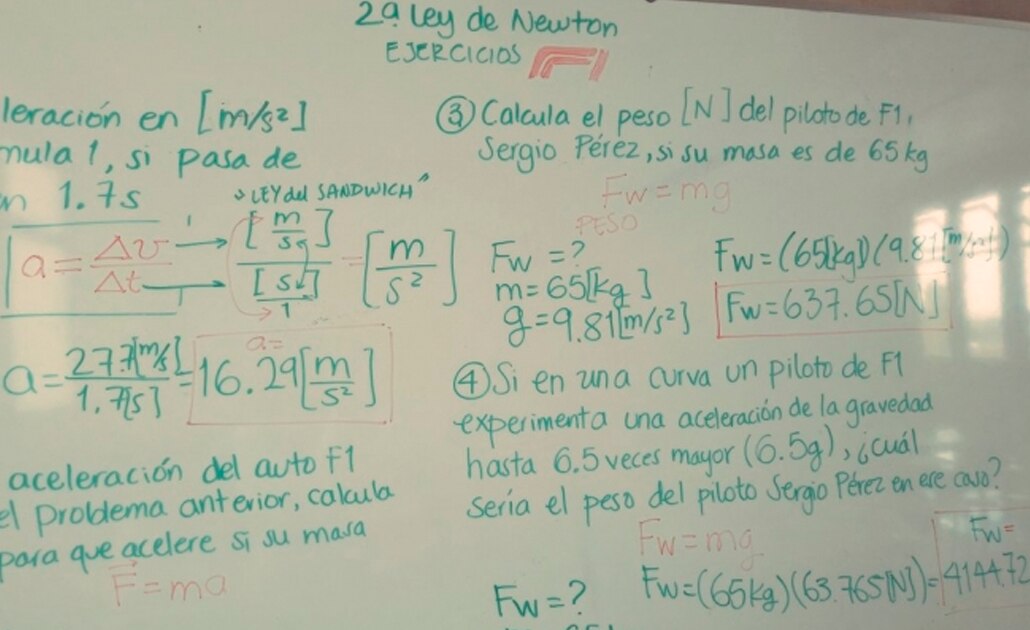 2ª Ley de Newton
EJERCICIOS
leración en [m/s²]
mula 1, si pasa de
n 1.7s
"LEY del SANDWICH"
a = Δv / Δt → [m/sg] / [s]/1 = [m/s²]
a = 27.7[m/s] / 1.7[s] = 16.29 [m/s²]
a=
aceleración del auto F1
el problema anterior, calcula
para que acelere si su masa
F = ma
③ Calcula el peso [N] del piloto de F1,
Sergio Pérez, si su masa es de 65kg
Fw = mg
PESO
Fw = ?
m = 65[kg]
g = 9.81[m/s²]
Fw = (65[kg])(9.81[m/s²])
Fw = 637.65[N]
④ Si en una curva un piloto de F1
experimenta una aceleración de la gravedad
hasta 6.5 veces mayor (6.5g), ¿cuál
sería el peso del piloto Sergio Pérez en ese caso?
Fw = mg
Fw = ?
Fw = (65kg)(63.765[N]) =
Fw =
4144.72